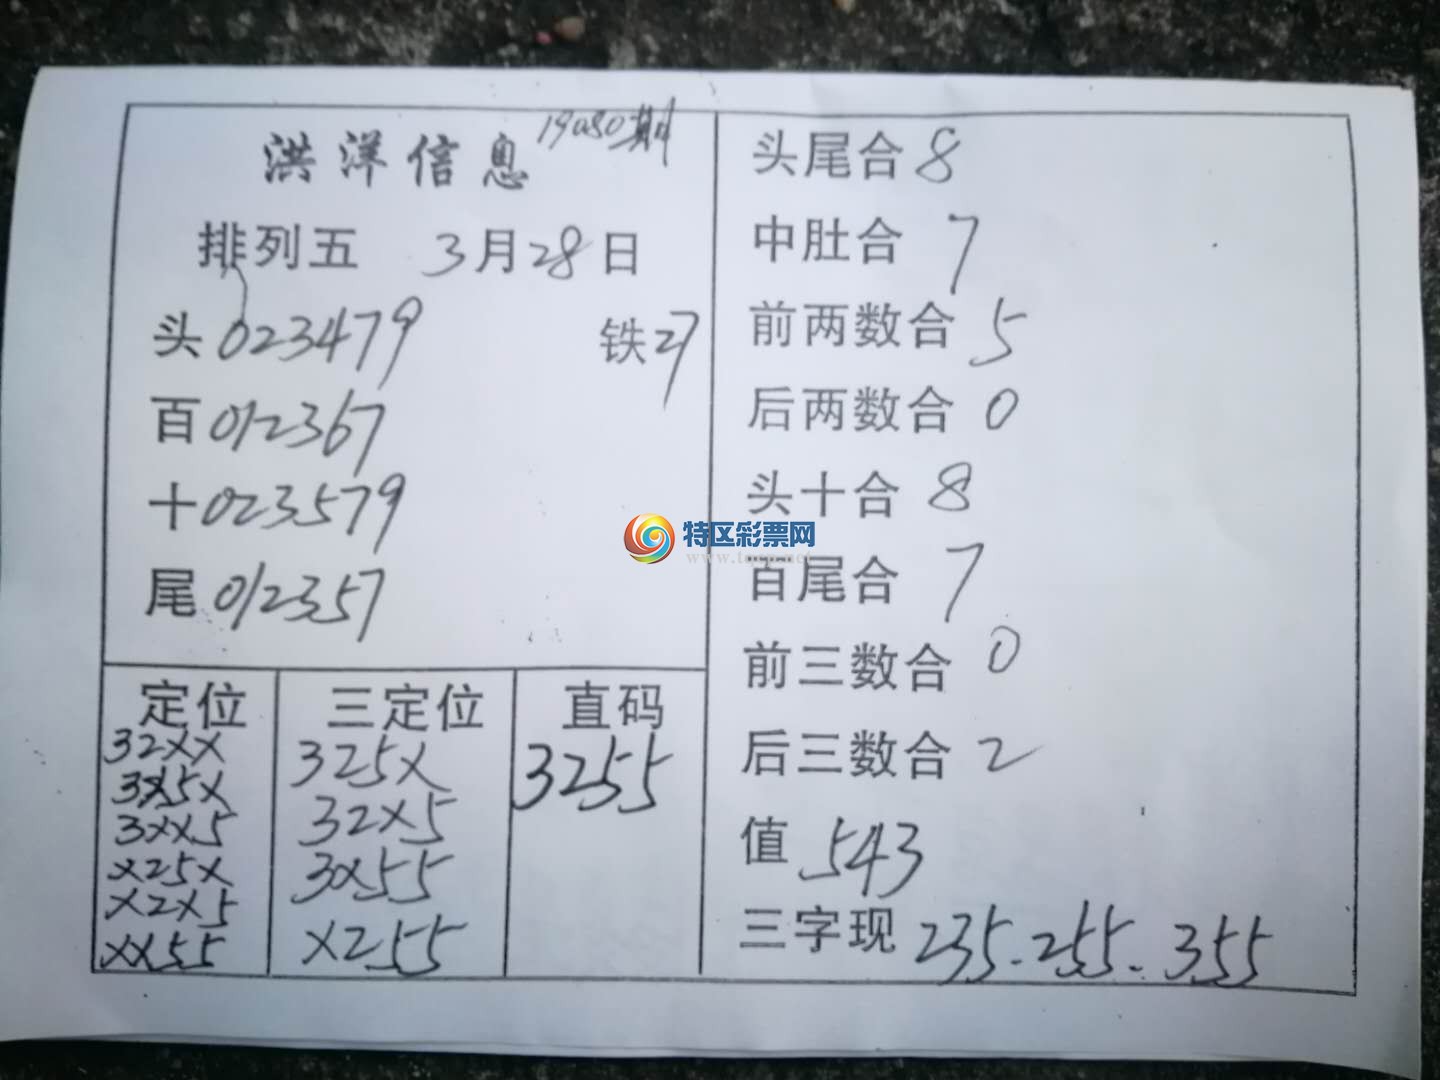 洪洋信息 19080期
排列五 3月28日
头 023479 铁27
百 012367
十 023579
尾 012357
定位
32XX
3X5X
3XX5
X25X
X2X5
XX55
三定位
325X
32X5
3X55
X255
直码
3255
头尾合 8
中肚合 7
前两数合 5
后两数合 0
头十合 8
百尾合 7
前三数合 0
后三数合 2
值 543
三字现 235-255-355
特区彩票网